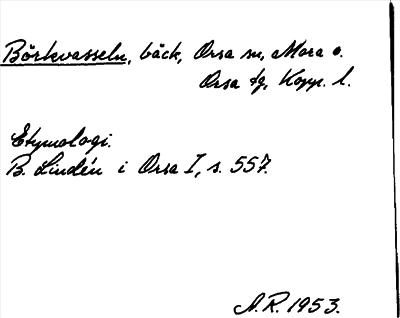 Börkvasseln, bäck, Orsa sn, Mora o.
Orsa tg, Kopp. l.
Etymologi.
B. Lindén i Orsa I, s. 557.
A.R. 1953.